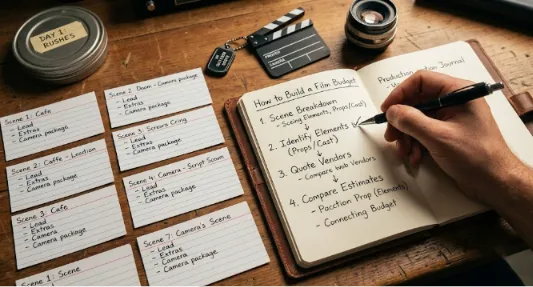 DAY 1:
RUSHES
Scene 1: Cafe
- Lead
- Extras
- Camera package
Scene 2: Caffe - Lenction
- Lead
- Extras
- Camera package
Scene 3: Cafe
- Lead
- Extras
- Camera
- Camera package
Scene 1: Scene
Scene 2 Down - Camera package
- Lead
- Extras
- Camera package
Scene 3: Screurs Cring
- Lead
- Extras
- Camera package
Scene 4: Camera - Script Scum
- Lead
- Extras
- Camera package
Scene 7: Camera's Scene
- Lead
- Extras
- Camera
- Camera package
How to Build a Film Budget
1. Scene Breakdown
- Scring Elements, Props/Cast)
2. Identify Elements
(Props/Cast)
3. Quote Vendors
- Compare Vendors
4. Compare Estimates
- Pacction Prop (Elements)
- Connecting Budget
Journal